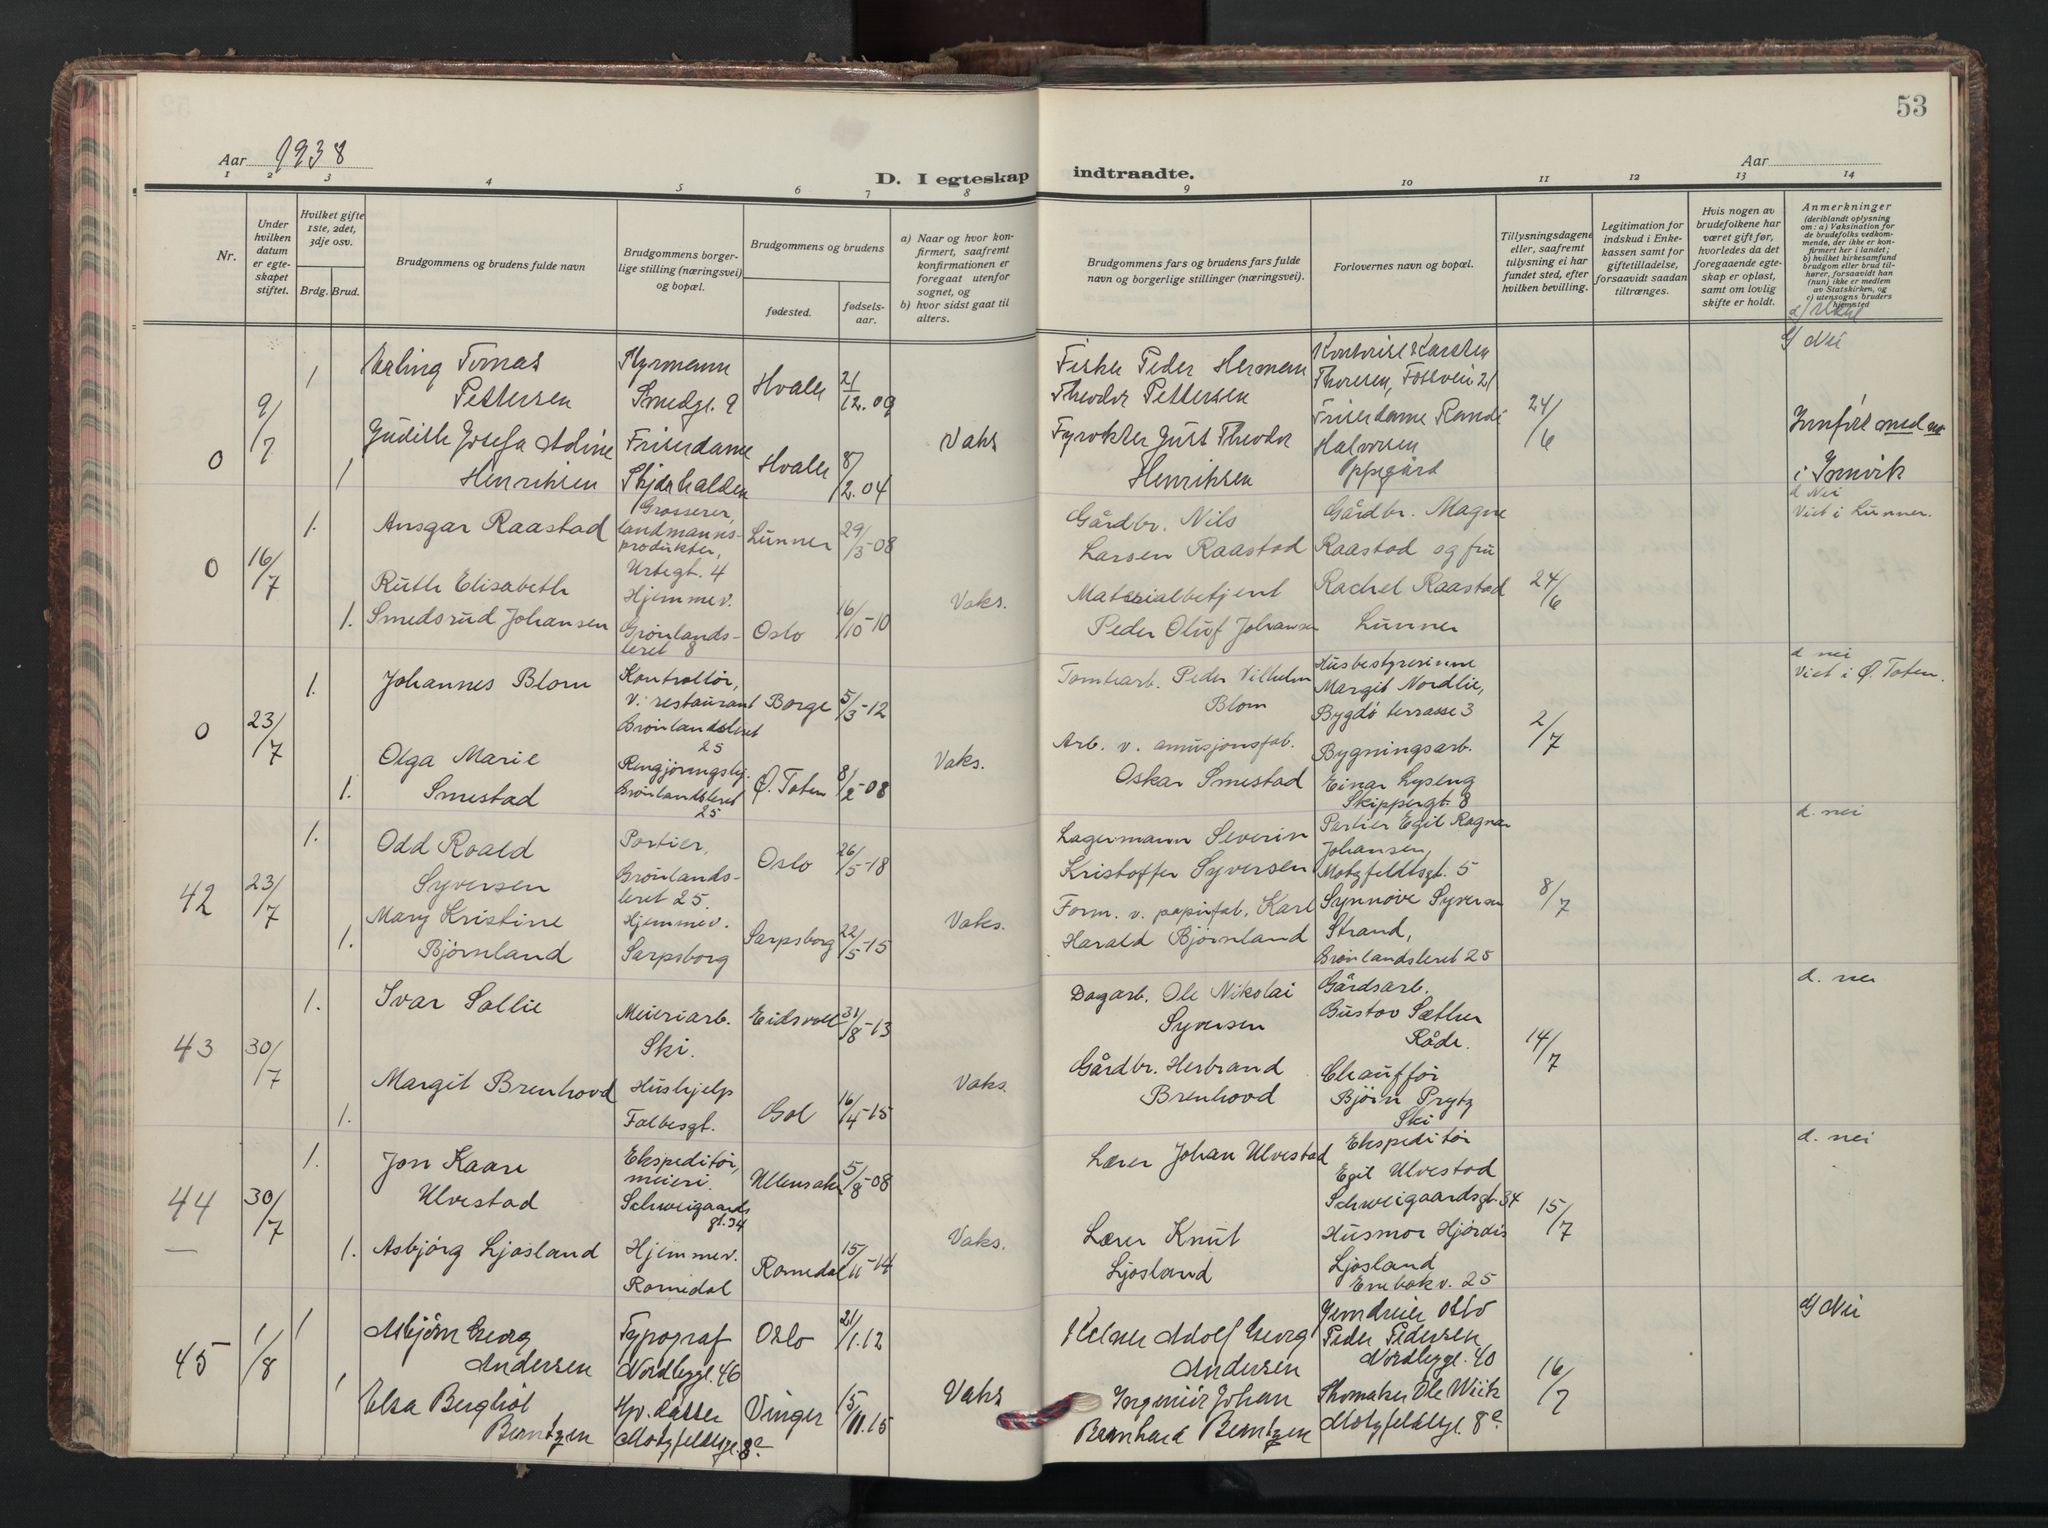 53
Aar 1938
Aar
D. I egteskap indtraadte.
1 2 3 4 5 6 7 8 9 10 11 12 13 14
Nr.
Under hvilken datum er egteskapet stiftet.
Hvilket gifte 1ste, 2det, 3dje osv.
Brdg. Brud.
Brudgommens og brudens fulde navn
Brudgommens borgerlige stilling (næringsvei) og bopæl.
Brudgommens og brudens
fødested.
fødselsaar.
a) Naar og hvor konfirmert, saafremt konfirmationen er foregaat utenfor sognet, og
b) hvor sidst gaat til alters.
Brudgommens fars og brudens fars fulde navn og borgerlige stillinger (næringsvei).
Forlovernes navn og bopæl.
Tillysningsdagene eller, saafremt tillysning ei har fundet sted, efter hvilken bevilling.
Legitimation for indskud i Enkekassen samt for giftetilladelse, forsaavidt saadan tiltrænges.
Hvis nogen av brudefolkene har været gift før, hvorledes da det foregaaende egteskap er opløst, samt om lovlig skifte er holdt.
Anmerkninger
(deriblandt oplysning om: a) Vaksination for de brudefolks vedkommende, der ikke er konfirmert her i landet; b) hvilket kirkesamfund brudgom eller brud tilhører, forsaavidt han (hun) ikke er medlem av Statskirken, og c) utensogns bruders hjemsted
0 9/7
1 Erling Tomas Pettersen
Styrmann Smedgt. 9
Hvaler 21/12.09
Fisker Peder Herman Theodor Pettersen
Kontorist Karsten Thoresen, Fossvei 21
d Nei
1 Judith Josefa Adine Henriksen
Friserdame Skjærhalden
Hvaler 8/2.04
Vaks
Fyrvokter Just Theodor Henriksen
Friserdame Randi Halvorsen Oppegård
24/6
Innført med nr i Innvik
0 16/7
1. Ansgar Raastad
Grosserer, landmanns-produkter, Urtegt. 4
Lunner 29/3-08
Gårdbr. Nils Larsen Raastad
Gårdbr. Magne Raastad og fru
d Nei
Viet i Lunner.
1. Ruth Elisabeth Smedsrud Johansen
Hjemmev. Grønlands-leret 8
Oslo 16/10-10
Vaks.
Materialbetjent Peder Oluf Johansen
Rachel Raastad Lunner
24/6
0 23/7
1. Johannes Blom
Kontrollør, v. restaurant Grønlandsleret 25
Borge 5/3-12
Tomtearb. Peder Vilhelm Blom
Husbestyrerinne Margit Nordlie, Bygdø terrasse 3
d nei
Viet i Ø. Toten.
1. Olga Marie Smestad
Rengjøringshj. Grønlandsleret 25
Ø. Toten 8/2-08
Vaks.
Arb. v. amusjonsfab. Oskar Smestad
Bygningsarb. Einar Lyseng Skippergt. 8
2/7
42 23/7
1. Odd Roald Syversen
Portier, Grønlands-leret 25.
Oslo 26/5-18
Lagermann Severin Kristoffer Syversen
Portier Egil Ragnar Johansen, Motzfeldtsgt. 5
d. nei
1. Mary Kristine Bjørnland
Hjemmev. Sarpsborg
Sarpsborg 22/5-15
Vaks.
Form. v. papirfab. Karl Harald Bjørnland
Synnøve Syversen Strand, Grønlandsleret 25
8/7
43 30/7
1. Ivar Sollie
Meieriarb. Ski.
Eidsvoll 31/8-13
Dagarb. Ole Nikolai Syversen
Gårdsarb. Gustav Sæther Råde.
d. nei
1. Margit Brenhovd
Hushjelp Falbesgt.
Gol 16/4-15
Vaks.
Gårdbr. Herbrand Brenhovd
Chauffør Bjørn Prytz Ski
14/7
44 30/7
1. Jon Kaare Ulvestad
Ekspeditør, meieri. Schweigaards gt. 34
Ullensaker 5/8-08
Lærer Johan Ulvestad
Ekspeditør Egil Ulvestad Schweigaardsgt. 34
d. nei
1. Asbjørg Ljosland
Hjemmev. Romedal
Romedal 15/11-14
Vaks.
Lærer Knut Ljosland
Husmor Hjørdis Ljosland Enebakv. 25
15/7
45 1/8
1 Asbjørn Georg Andersen
Typograf Nordbygt. 46
Oslo 21/1.12
Kelner Adolf Georg Andersen
Jerndreier Oslo Peder Pedersen Nordbygt. 40
d Nei
1 Elsa Bergliot Berntzen
Hv. datter Motzfeldtgt. 8c
Vinger 15/11.15
Vaks
Ingeniør Johan Bernhard Berntzen
Skomaker Ole Wiik Motzfeldtgt. 8c
16/7